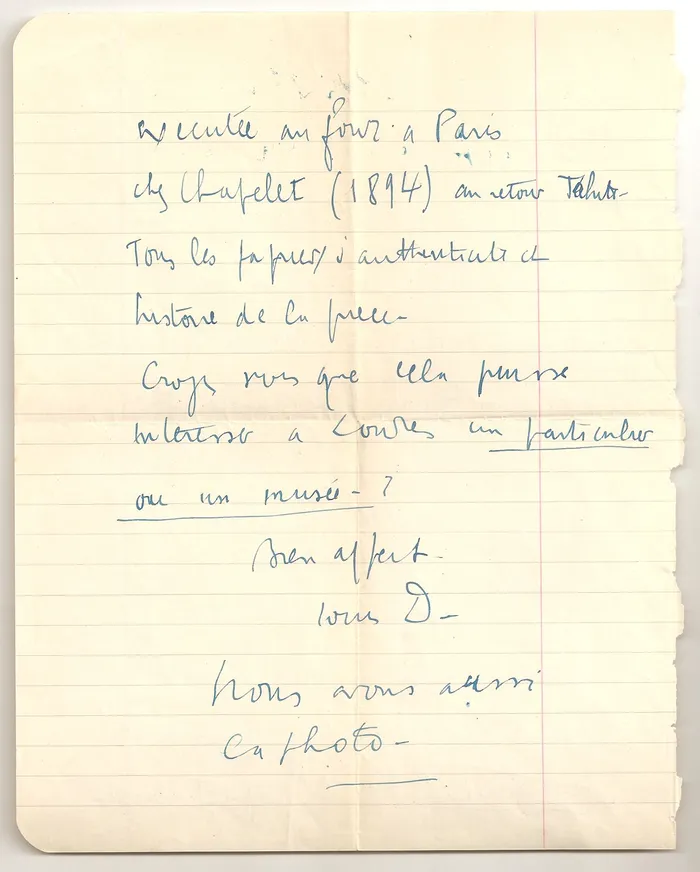 executée au four a Paris
chez Chapelet (1894) au retour Tahiti-
Tous les papiers d'authenticité et
histoire de la piece-
Croyez vous que cela puisse
interesser a Londres un particulier
ou un musée- ?
Bien affect.
Louis D-
Nous avons aussi
la photo-